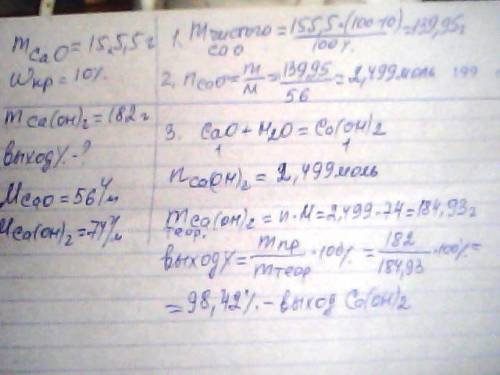 m CaO = 15.5,5 г
ω кр = 10%
m Ca(OH)₂ = 182 г
выход% - ?
M CaO = 56 г/м
M Ca(OH)₂ = 74 г/м
1. m чистого CaO = 155,5 · (100-10) / 100% = 139,95 г
2. n CaO = m/M = 139,95/56 = 2,499 моль 199
3. CaO + H₂O = Ca(OH)₂
1 1
n Ca(OH)₂ = 2,499 моль
m Ca(OH)₂ теор. = n · M = 2,499 · 74 = 184,93 г
выход% = m пр / m теор · 100% = 182 / 184,93 · 100% =
= 98,42% - выход Ca(OH)₂